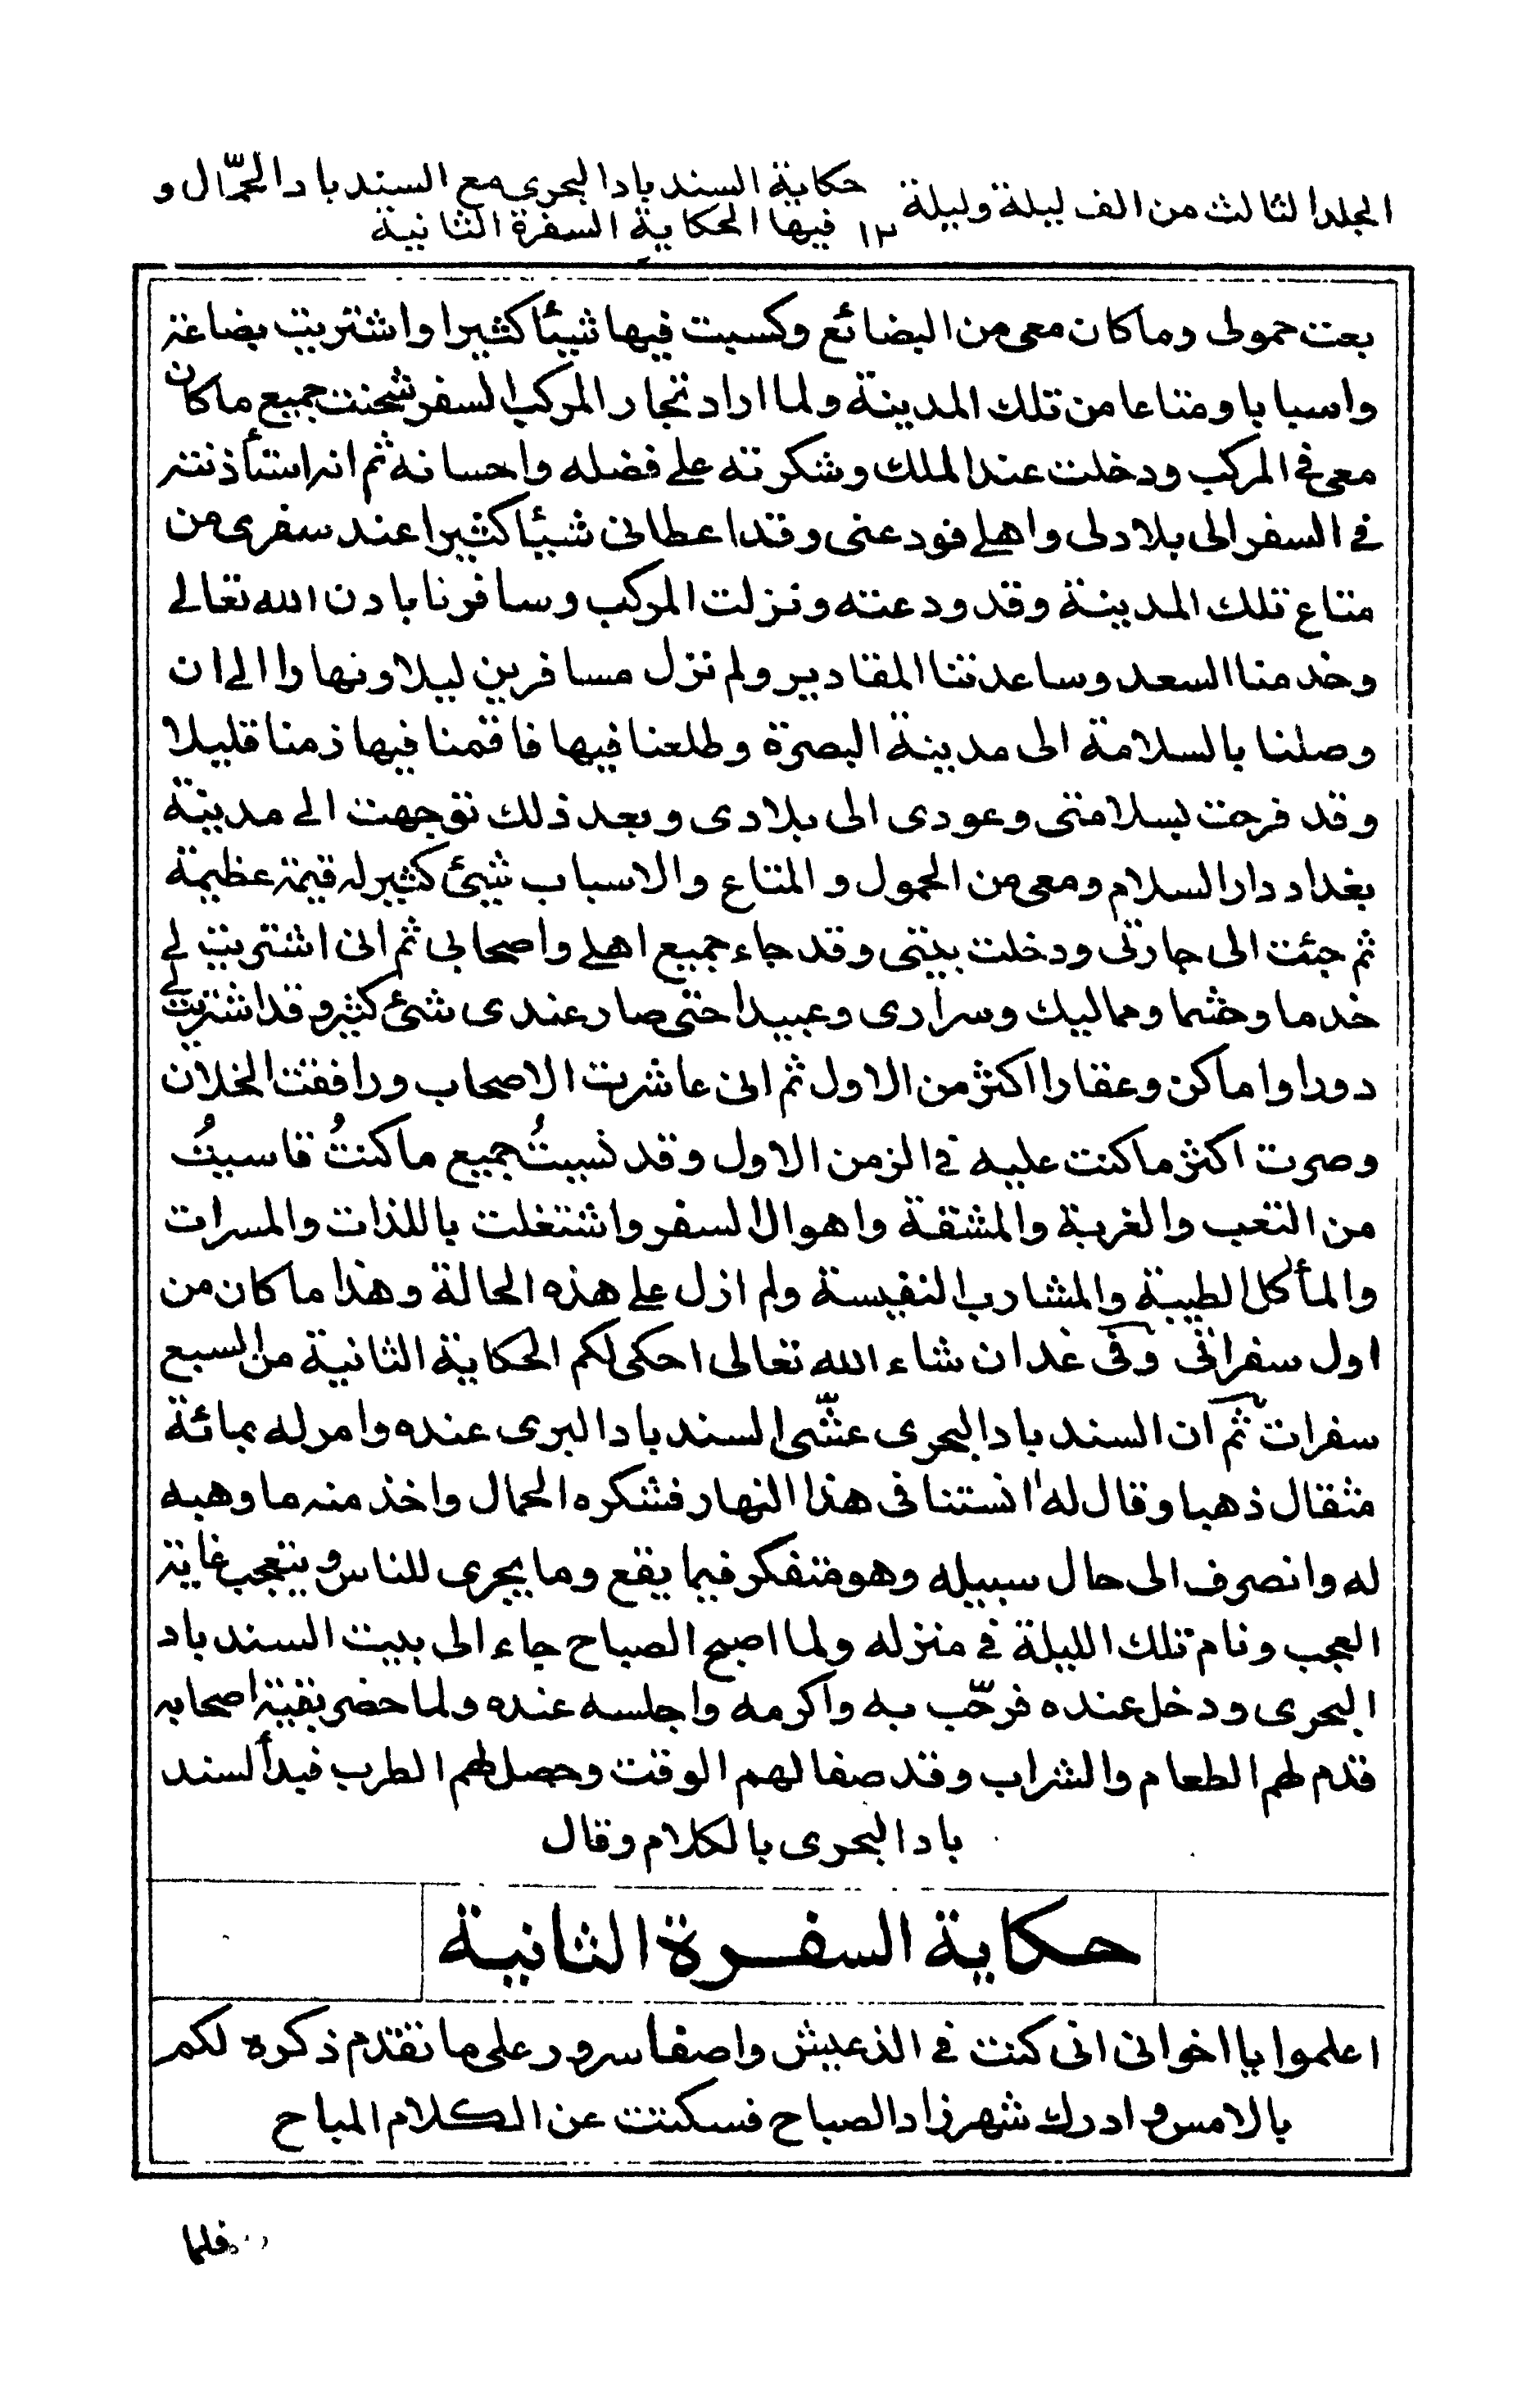 المجلد الثالث من الف ليلة وليلة ١٢ حكاية السند باد البحري مع السند باد الحمّال و
فيها الحكاية السفرة الثانية
بعت حمولى وما كان معى من البضائع وكسبت فيها شيئا كثيرا واشتريت بضاعة
واسبابا ومتاعا من تلك المدينة ولما اراد تجار المركب السفر شحنت جميع ما كان
معى فى المركب ودخلت عند الملك وشكرته على فضله واحسانه ثم انه استأذنته
فى السفر الى بلادلى واهلى فودعنى وقد اعطانى شيئا كثيرا عند سفرى من
متاع تلك المدينة وقد ودعته ونزلت المركب وسافرنا بادن الله تعالى
وخدمنا السعد وساعدتنا المقادير ولم نزل مسافرين ليلا ونهارا الى ان
وصلنا بالسلامة الى مدينة البصرة وطلعنا فيها فاقمنا فيها زمنا قليلا
وقد فرحت بسلامتى وعودى الى بلادى وبعد ذلك توجهت الى مدينة
بغداد دار السلام ومعى من الحمول و المتاع والاسباب شيئ كثير له قيمة عظيمة
ثم جئت الى حارتى ودخلت بيتى وقد جاء جميع اهلى واصحابى ثم انى اشتريت لى
خدما وحشما ومماليك وسرارى وعبيدا حتى صار عندى شئ كثير وقد اشتريت لى
دورا واماكن وعقارا اكثر من الاول ثم انى عاشرت الاصحاب ورافقت الخلان
وصرت اكثر ما كنت عليه فى الزمن الاول وقد نسيتُ جميع ما كنتُ قاسيتُ
من التعب والغربة والمشقة واهوال السفر واشتغلت باللذات والمسرات
والمأكل الطيبة والمشارب النفيسة ولم ازل على هذه الحالة وهذا ما كان من
اول سفراتى وفى غد ان شاء الله تعالى احكى لكم الحكاية الثانية من السبع
سفرات ثم ان السند باد البحرى عشّى السند باد البرى عنده وامر له بمائة
مثقال ذهبا وقال له آنستنا فى هذا النهار فشكره الحمال واخذ منه ما وهبه
له وانصرف الى حال سبيله وهو متفكر فيما يقع وما يجرى للناس ويتعجب غاية
العجب ونام تلك الليلة فى منزله ولما اصبح الصباح جاء الى بيت السند باد
البحرى ودخل عنده فرحّب به واكرمه واجلسه عنده ولما حضر بقية اصحابه
قدم لهم الطعام والشراب وقد صفا لهم الوقت وحصل لهم الطرب فبدأ السند
باد البحرى بالكلام وقال
حكاية السفرة الثانية
اعلموا يا اخوانى انى كنت فى الذ عيش واصفا سرور على ما تقدم ذكره لكم
بالامس و ادرك شهرزاد الصباح فسكتت عن الكلام المباح
فلما